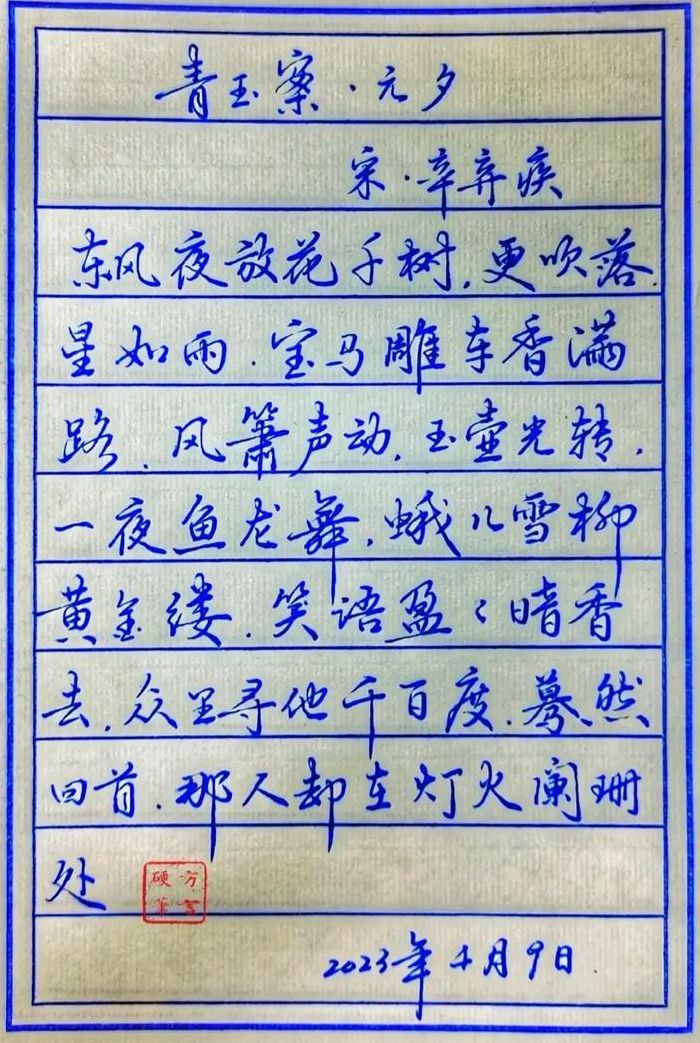 青玉案·元夕
宋·辛弃疾
东风夜放花千树,更吹落,
星如雨.宝马雕车香满
路.风箫声动,玉壶光转,
一夜鱼龙舞.蛾儿雪柳
黄金缕.笑语盈〻暗香
去.众里寻他千百度.蓦然
回首.那人却在灯火阑珊
处
方言硬笔
2023年十月9日